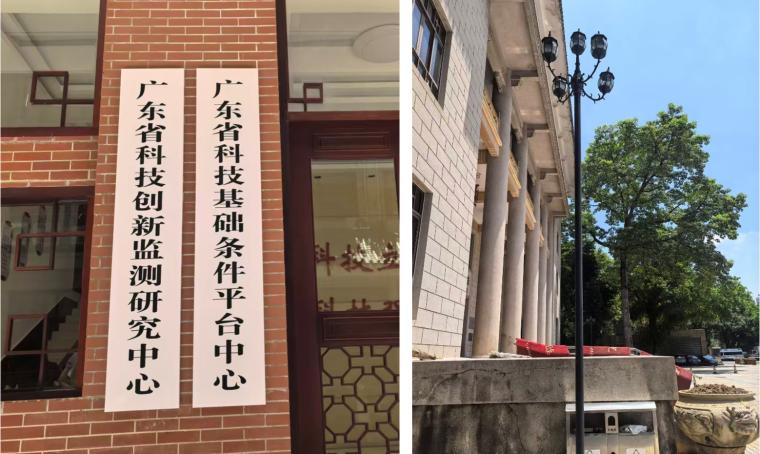 广东省科技创新监测研究中心
广东省科技基础条件平台中心